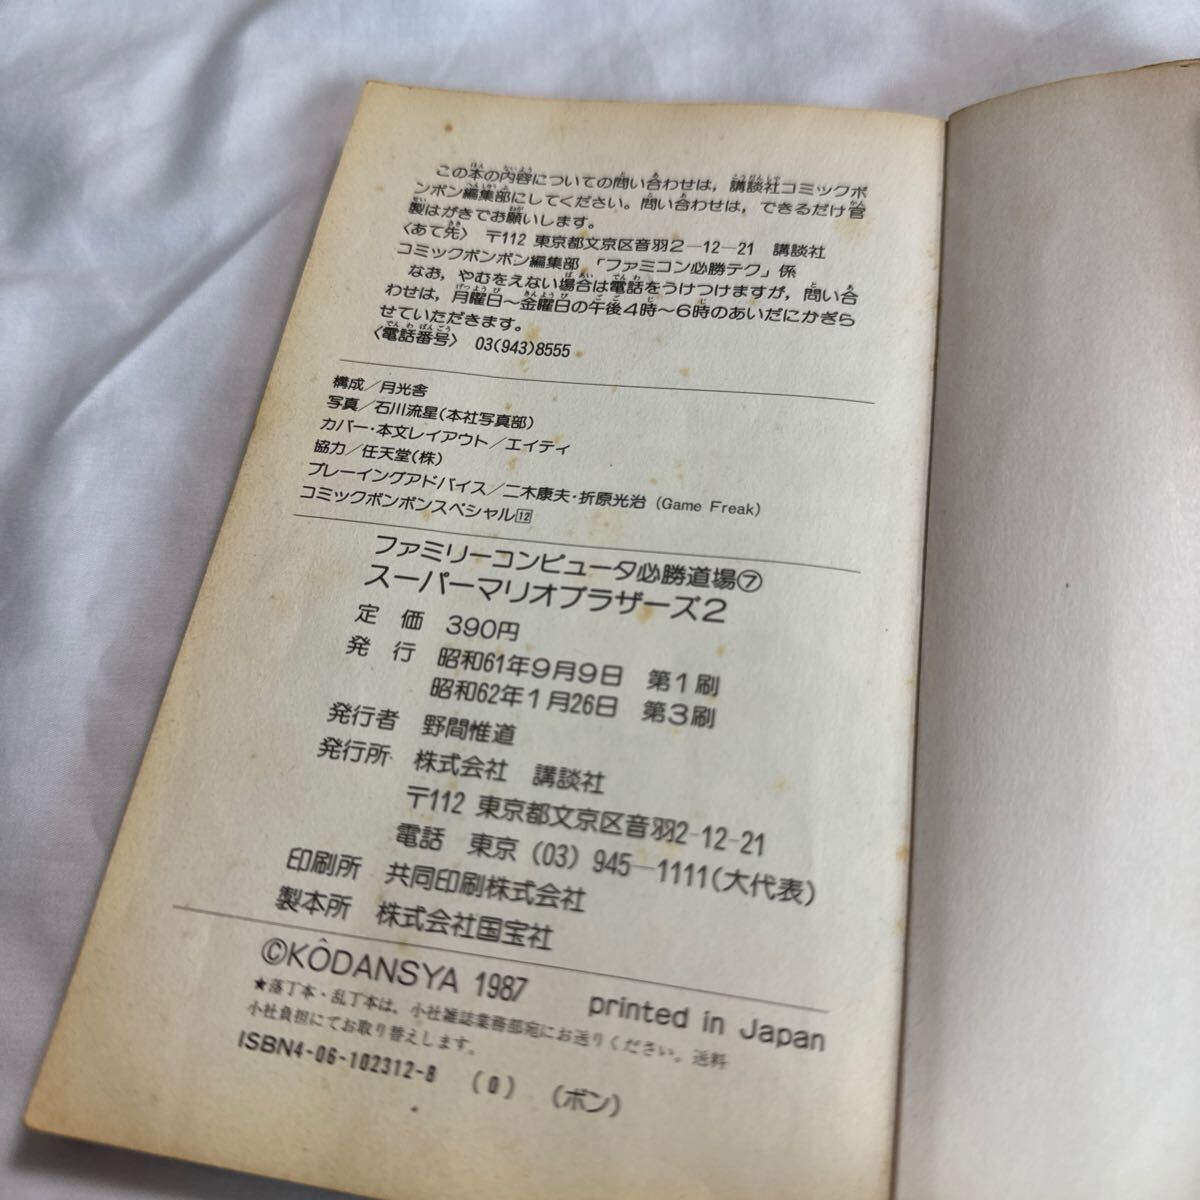 この本の内容についての問い合わせは，講談社コミックボ
ンボン編集部にしてください。問い合わせは，できるだけ官
製はがきでお願いします。
〈あて先〉 〒112 東京都文京区音羽2—12—21 講談社
コミックボンボン編集部 「ファミコン必勝テク」係
なお，やむをえない場合は電話をうけつけますが，問い合
わせは，月曜日〜金曜日の午後4時〜6時のあいだにかぎら
せていただきます。
〈電話番号〉 03(943)8555
構成／月光舎
写真／石川流星(本社写真部)
カバー・本文レイアウト／エイティ
協力／任天堂(株)
プレーイングアドバイス／二木康夫・折原光治 (Game Freak)
コミックボンボンスペシャル12
ファミリーコンピュータ必勝道場⑦
スーパーマリオブラザーズ2
定 価 390円
発 行 昭和61年9月9日 第1刷
昭和62年1月26日 第3刷
発行者 野間惟道
発行所 株式会社 講談社
〒112 東京都文京区音羽2-12-21
電話 東京 (03) 945—1111(大代表)
印刷所 共同印刷株式会社
製本所 株式会社国宝社
©KÔDANSYA 1987 printed in Japan
★落丁本・乱丁本は、小社雑誌業務部宛にお送りください。送料
小社負担にてお取り替えします。
ISBN4-06-102312-8 (0) (ボン)